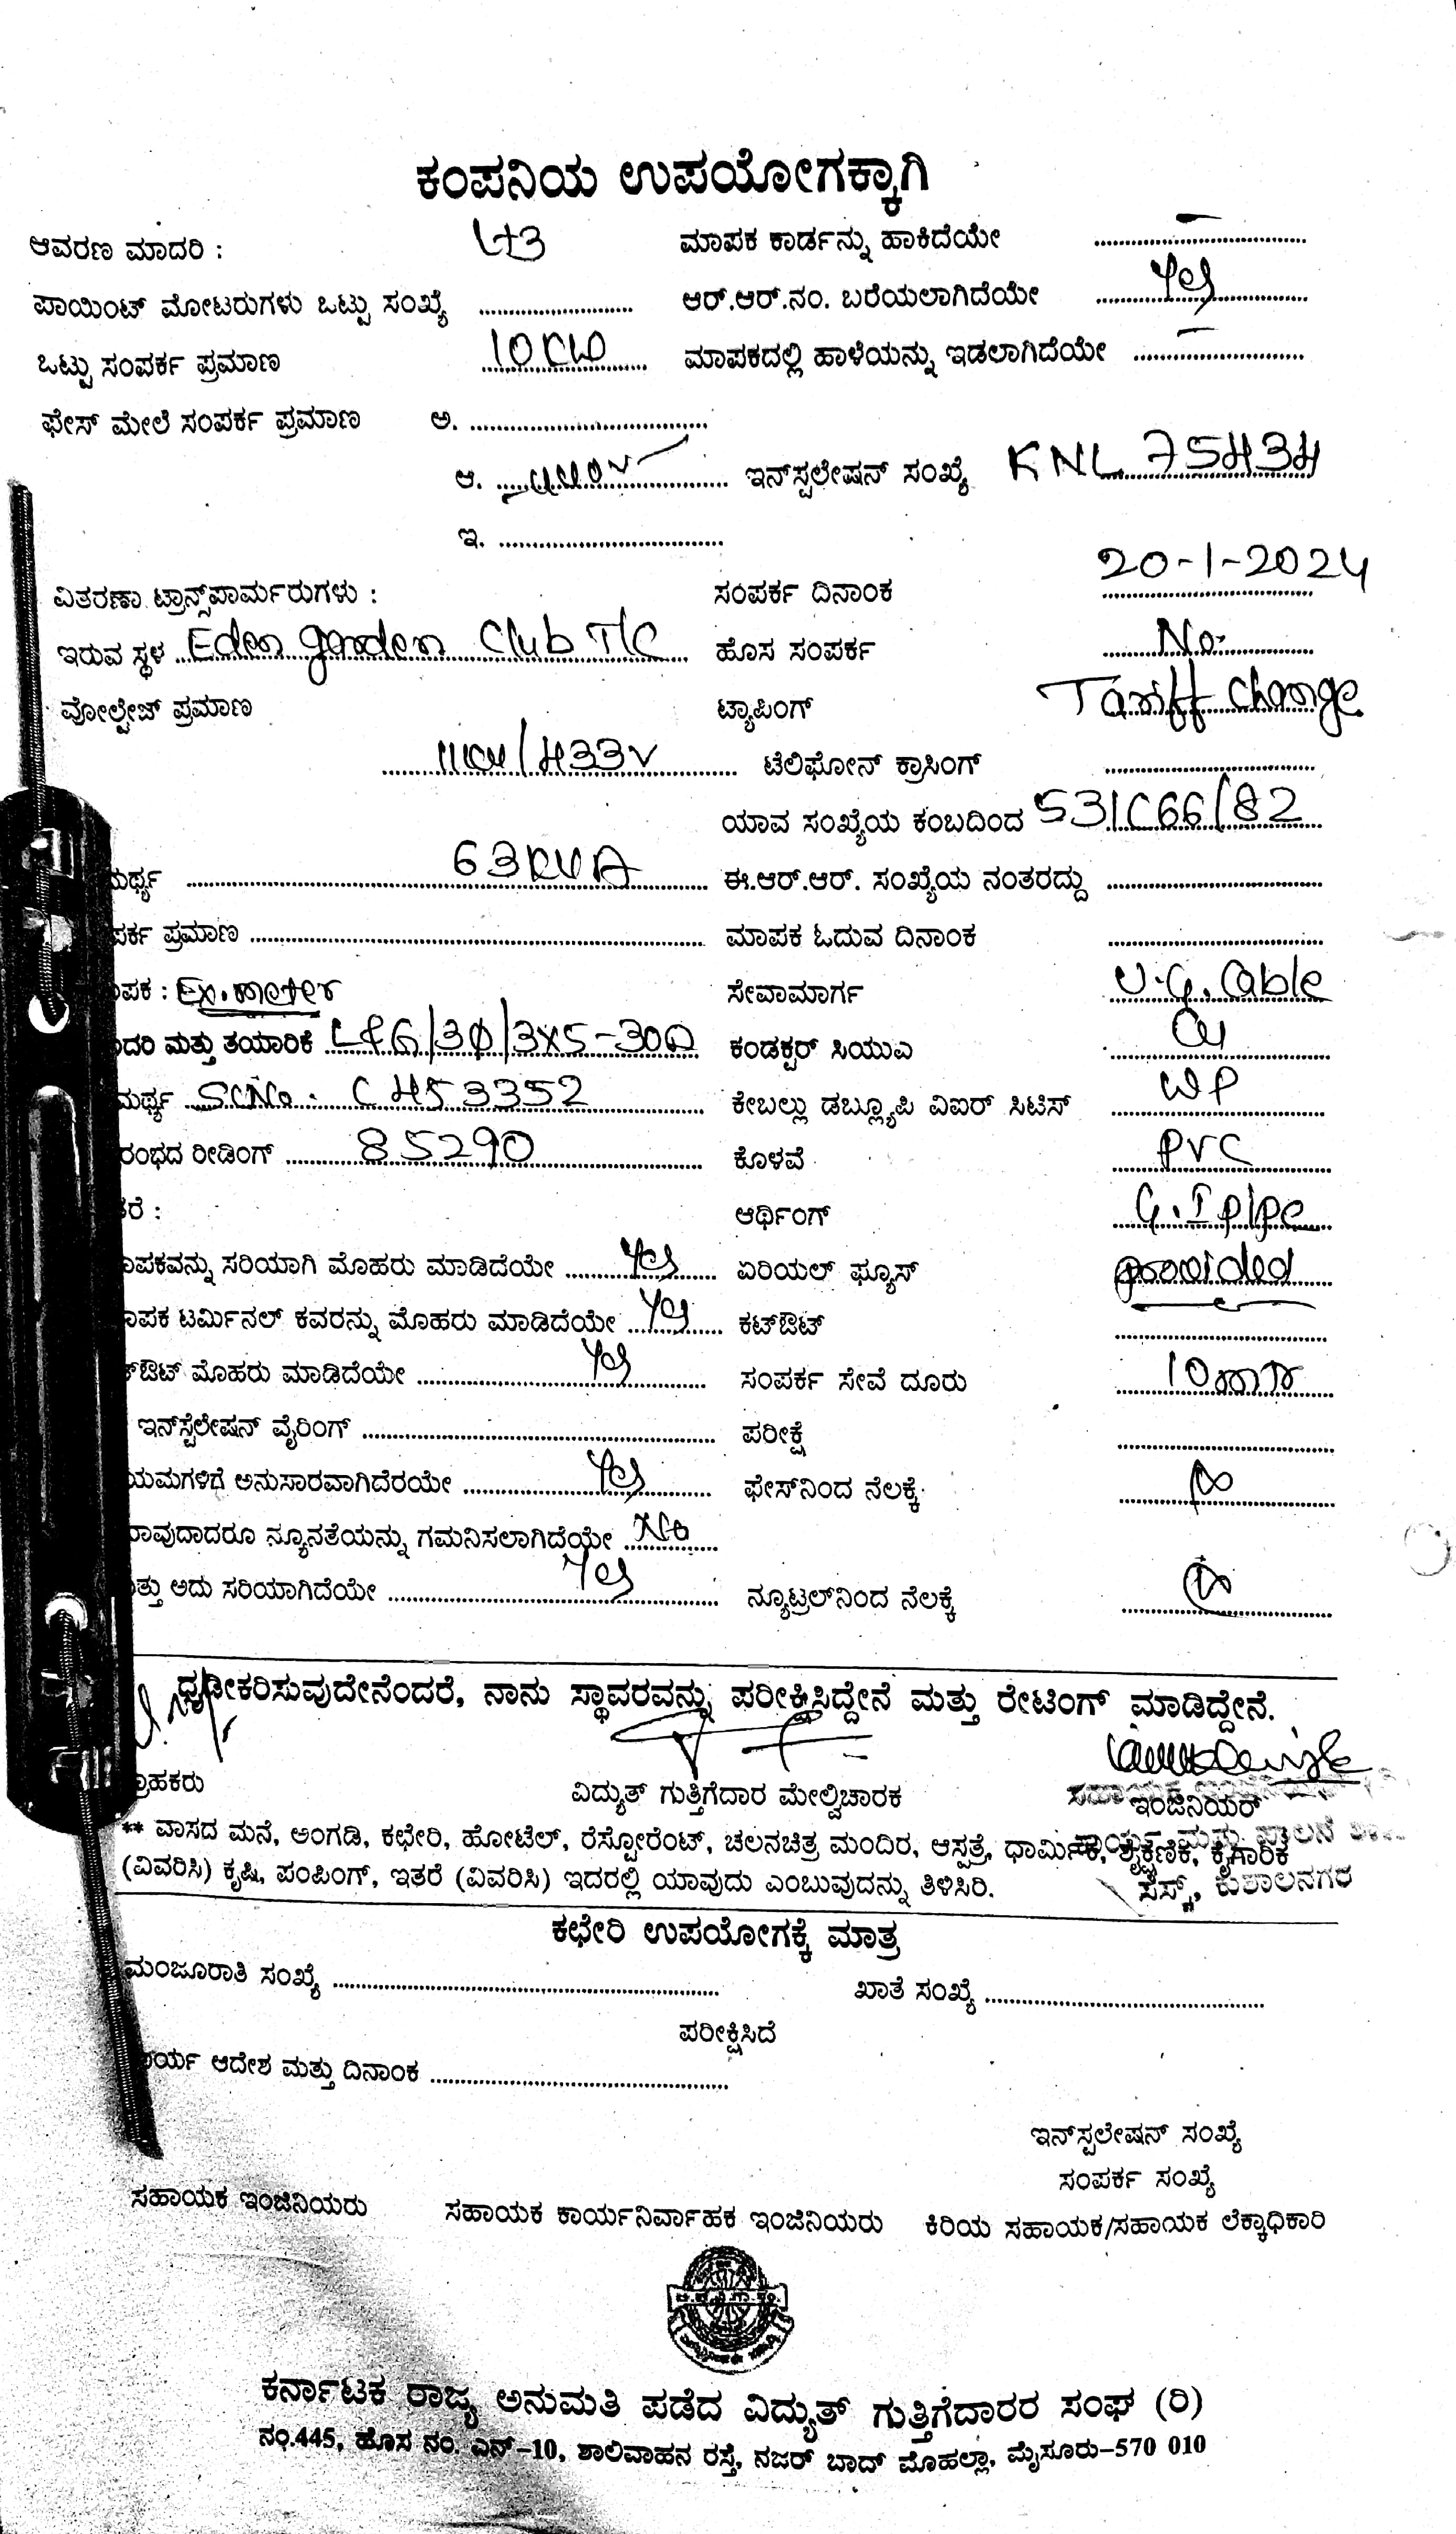 ಕಂಪನಿಯ ಉಪಯೋಗಕ್ಕಾಗಿ
ಆವರಣ ಮಾದರಿ : Lt3 ಮಾಪಕ ಕಾರ್ಡನ್ನು ಹಾಕಿದೆಯೇ –
ಪಾಯಿಂಟ್ ಮೋಟರುಗಳು ಒಟ್ಟು ಸಂಖ್ಯೆ ಆರ್.ಆರ್.ನಂ. ಬರೆಯಲಾಗಿದೆಯೇ Yes
ಒಟ್ಟು ಸಂಪರ್ಕ ಪ್ರಮಾಣ 10KW ಮಾಪಕದಲ್ಲಿ ಹಾಳೆಯನ್ನು ಇಡಲಾಗಿದೆಯೇ –
ಫೇಸ್ ಮೇಲೆ ಸಂಪರ್ಕ ಪ್ರಮಾಣ ಅ.
ಆ. ಇನ್‌ಸ್ಟಲೇಷನ್ ಸಂಖ್ಯೆ KNL 75434
ಇ.
ವಿತರಣಾ ಟ್ರಾನ್ಸ್‌ಫಾರ್ಮರುಗಳು : ಸಂಪರ್ಕ ದಿನಾಂಕ 20-1-2024
ಇರುವ ಸ್ಥಳ Eden garden Club T/C ಹೊಸ ಸಂಪರ್ಕ No.
ವೋಲ್ಟೇಜ್ ಪ್ರಮಾಣ ಟ್ಯಾಪಿಂಗ್ Tariff Change
11KV/433V ಟೆಲಿಫೋನ್ ಕ್ರಾಸಿಂಗ್
ಯಾವ ಸಂಖ್ಯೆಯ ಕಂಬದಿಂದ 531C66/82
ಮರ್ಥ್ಯ 63KVA ಈ.ಆರ್.ಆರ್. ಸಂಖ್ಯೆಯ ನಂತರದ್ದು
ಪರ್ಕ ಪ್ರಮಾಣ ಮಾಪಕ ಓದುವ ದಿನಾಂಕ
ಪಕ : Ex.meter ಸೇವಾಮಾರ್ಗ U.G. Cable
ದರಿ ಮತ್ತು ತಯಾರಿಕೆ L&G/3Φ/3X5-30A ಕಂಡಕ್ಟರ್ ಸಿಯುಎ Cu
ಮರ್ಥ್ಯ Sl.No. C453352 ಕೇಬಲ್ಲು ಡಬ್ಲ್ಯೂಪಿ ವಿಐರ್ ಸಿಟಿಸ್ WP
ರಂಭದ ರೀಡಿಂಗ್ 85290 ಕೊಳವೆ PVC
ರೆ : ಆರ್ಥಿಂಗ್ G.I pipe
ಪಕವನ್ನು ಸರಿಯಾಗಿ ಮೊಹರು ಮಾಡಿದೆಯೇ Yes ಏರಿಯಲ್ ಫ್ಯೂಸ್ provided
ಪಕ ಟರ್ಮಿನಲ್ ಕವರನ್ನು ಮೊಹರು ಮಾಡಿದೆಯೇ Yes ಕಟ್‌ಔಟ್
ಔಟ್ ಮೊಹರು ಮಾಡಿದೆಯೇ Yes ಸಂಪರ್ಕ ಸೇವೆ ದೂರು 10mtr
ಇನ್‌ಸ್ಟೆಲೇಷನ್ ವೈರಿಂಗ್ ಪರೀಕ್ಷೆ
ಯಮಗಳಿಗೆ ಅನುಸಾರವಾಗಿದೆರಯೇ Yes ಫೇಸ್‌ನಿಂದ ನೆಲಕ್ಕೆ
ಾವುದಾದರೂ ನ್ಯೂನತೆಯನ್ನು ಗಮನಿಸಲಾಗಿದೆಯೇ No
ತ್ತು ಅದು ಸರಿಯಾಗಿದೆಯೇ Yes ನ್ಯೂಟ್ರಲ್‌ನಿಂದ ನೆಲಕ್ಕೆ
ಧೃಡೀಕರಿಸುವುದೇನೆಂದರೆ, ನಾನು ಸ್ಥಾವರವನ್ನು ಪರೀಕ್ಷಿಸಿದ್ದೇನೆ ಮತ್ತು ರೇಟಿಂಗ್ ಮಾಡಿದ್ದೇನೆ.
ಗ್ರಾಹಕರು ವಿದ್ಯುತ್ ಗುತ್ತಿಗೆದಾರ ಮೇಲ್ವಿಚಾರಕ ಇಂಜಿನಿಯರ್
** ವಾಸದ ಮನೆ, ಅಂಗಡಿ, ಕಛೇರಿ, ಹೋಟೆಲ್, ರೆಸ್ಟೋರೆಂಟ್, ಚಲನಚಿತ್ರ ಮಂದಿರ, ಆಸ್ಪತ್ರೆ, ಧಾರ್ಮಿಕ, ಶೈಕ್ಷಣಿಕ, ಕೈಗಾರಿಕೆ
(ವಿವರಿಸಿ) ಕೃಷಿ, ಪಂಪಿಂಗ್, ಇತರೆ (ವಿವರಿಸಿ) ಇದರಲ್ಲಿ ಯಾವುದು ಎಂಬುವುದನ್ನು ತಿಳಿಸಿರಿ. ಸೆಸ್ಕ್, ಕುಶಾಲನಗರ
ಕಛೇರಿ ಉಪಯೋಗಕ್ಕೆ ಮಾತ್ರ
ಮಂಜೂರಾತಿ ಸಂಖ್ಯೆ ಖಾತೆ ಸಂಖ್ಯೆ
ಪರೀಕ್ಷಿಸಿದೆ
ರ್ಯ ಆದೇಶ ಮತ್ತು ದಿನಾಂಕ
ಇನ್‌ಸ್ಟಲೇಷನ್ ಸಂಖ್ಯೆ
ಸಂಪರ್ಕ ಸಂಖ್ಯೆ
ಸಹಾಯಕ ಇಂಜಿನಿಯರು ಸಹಾಯಕ ಕಾರ್ಯನಿರ್ವಾಹಕ ಇಂಜಿನಿಯರು ಕಿರಿಯ ಸಹಾಯಕ/ಸಹಾಯಕ ಲೆಕ್ಕಾಧಿಕಾರಿ
ಕರ್ನಾಟಕ ರಾಜ್ಯ ಅನುಮತಿ ಪಡೆದ ವಿದ್ಯುತ್ ಗುತ್ತಿಗೆದಾರರ ಸಂಘ (ರಿ)
ನಂ.445, ಹೊಸ ನಂ. ಎನ್-10, ಶಾಲಿವಾಹನ ರಸ್ತೆ, ನಜರ್ ಬಾದ್ ಮೊಹಲ್ಲಾ, ಮೈಸೂರು-570 010